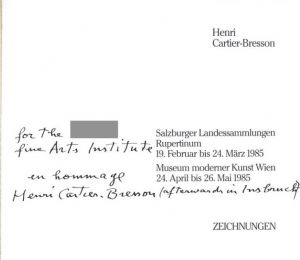 Henri
Cartier-Bresson
for the
fine Arts Institute
en hommage
Henri Cartier-Bresson (afterwards in Insbruck)
Salzburger Landessammlungen
Rupertinum
19. Februar bis 24. März 1985
Museum moderner Kunst Wien
24. April bis 26. Mai 1985
ZEICHNUNGEN